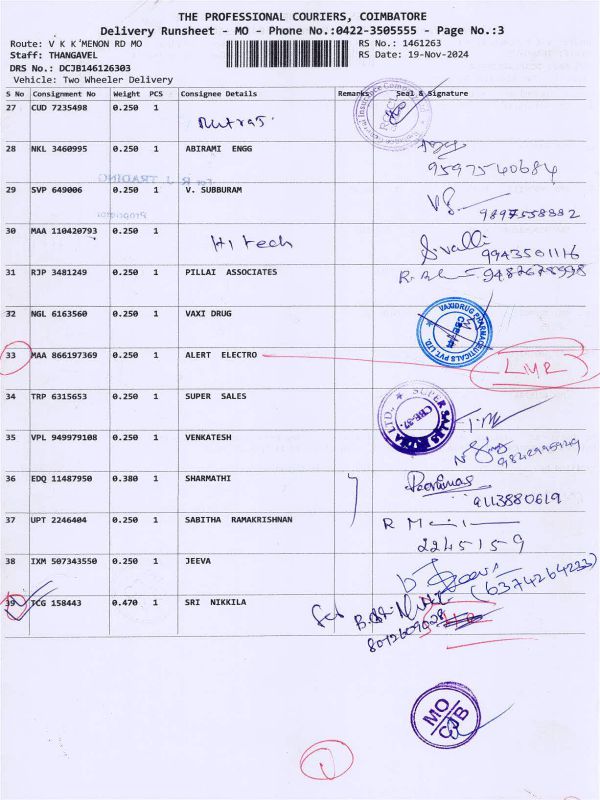 THE PROFESSIONAL COURIERS, COIMBATORE
Delivery Runsheet - MO - Phone No.:0422-3505555 - Page No.:3
Route: V K K'MENON RD MO RS No.: 1461263
Staff: THANGAVEL RS Date: 19-Nov-2024
DRS No.: DCJB146126303
Vehicle: Two Wheeler Delivery
S No Consignment No Weight PCS Consignee Details Remarks Seal & Signature
27 CUD 7235498 0.250 1
28 NKL 3460995 0.250 1 ABIRAMI ENGG
9597540684
29 SVP 649006 0.250 1 V. SUBBURAM
9897558882
30 MAA 110420793 0.250 1 Hi tech S.valli
9943501116
31 RJP 3481249 0.250 1 PILLAI ASSOCIATES 9487678998
32 NGL 6163560 0.250 1 VAXI DRUG
VAXIDRUG PHARMACEUTICALS PVT LTD.
33 MAA 866197369 0.250 1 ALERT ELECTRO
34 TRP 6315653 0.250 1 SUPER SALES
SUPER SALES INDIA LTD.
CBE-37.
35 VPL 949979108 0.250 1 VENKATESH
36 EDQ 11487950 0.380 1 SHARMATHI
9113880619
37 UPT 2246404 0.250 1 SABITHA RAMAKRISHNAN
2245159
38 IXM 507343550 0.250 1 JEEVA
(6374264233)
39 TCG 158443 0.470 1 SRI NIKKILA
8012609028
MO
CJB
1